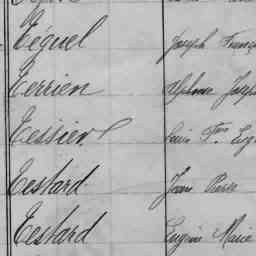 Téguel Joseph Franç
Terrien Alphonse Joseph
Tessier Louis Fois Eug
Testard Jean Pierre
Testard Eugène Marie